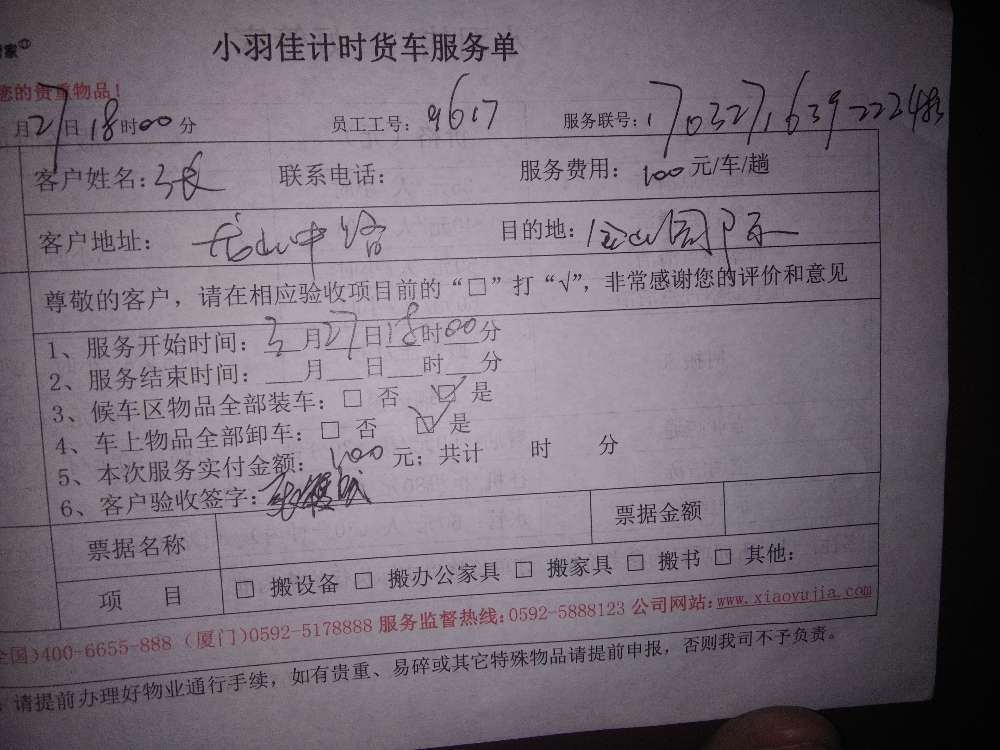 小羽佳计时货车服务单
您的贵重物品！
月27日18时00分 员工工号：9617 服务联号：
客户姓名：张 联系电话： 服务费用：100元/车/趟
客户地址： 目的地：
尊敬的客户，请在相应验收项目前的“□”打“√”，非常感谢您的评价和意见
1、服务开始时间：3月27日18时00分
2、服务结束时间：___月___日___时___分
3、候车区物品全部装车：□ 否 ☑ 是
4、车上物品全部卸车：□ 否 ☑ 是
5、本次服务实付金额：100元；共计 时 分
6、客户验收签字：
票据名称 票据金额
项 目 □ 搬设备 □ 搬办公家具 □ 搬家具 □ 搬书 □ 其他：
国)400-6655-888（厦门)0592-5178888 服务监督热线：0592-5888123 公司网站：www.xiaoyujia.com
请提前办理好物业通行手续，如有贵重、易碎或其它特殊物品请提前申报，否则我司不予负责。